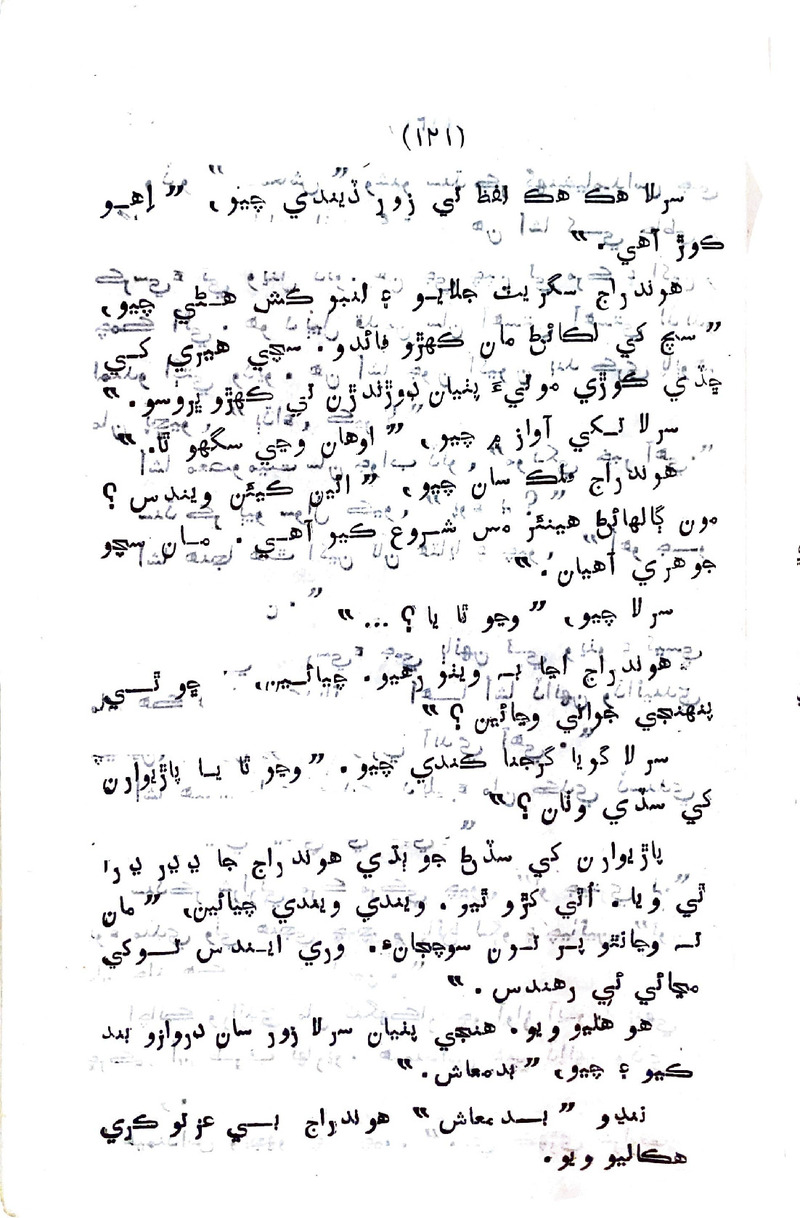 (۱۲۱)
سرلا هڪ هڪ لفظ تي زور ڏيندي چيو، ”اِهـو
ڪوڙ آهي.“
هوندراج سگريٽ جلايـو ۽ لنبو ڪش هـڻي چيو،
”سچ کي لڪائڻ مان ڪهڙو فائدو. سچي هيري کـي
ڇڏي ڪوڙي موتيءَ پٺيان ڊوڙندڙن تي ڪهڙو ڀروسو.“
سرلا تـکي آواز ۾ چيو، ”اوهان وڃي سگهو ٿا.“
هوندراج ملڪ سان چيو، ”ائين ڪيئن ويندس؟
مون ڳالهائڻ هينئر مس شـروع ڪيو آهـي. مـان سچو
جوهري آهيان.“
سرلا چيو، ”وڃو ٿا يا؟ ...“
هوندراج اڃا بـ ويٺو رهيو. چيائـين، ڇو ٿـــي
پنهنجي جواني وڃائين؟“
سرلا گويا گرجنا ڪندي چيو. ”وڃو ٿا يـا پاڙيوارن
کي سڏي وٺان؟“
پاڙيوارن کي سڏڻ جو ٻڌي هوندراج جا ڊڊر ڊرا
ٿي ويا. اُٿي کڙو ٿيو. ويندي ويندي چيائين، ”مان
تـ وڃانٿو پـر تـون سوچجانءِ. وري ايـندس تـوکي
مڃائي ئي رهندس.“
هو هليو ويو. هنجي پٺيان سرلا زور سان دروازو بند
ڪيو ۽ چيو، ”بدمعاش.“
ننڍو ”بــدمعاش“ هوندراج بـي عزتو ڪري
هڪاليو ويو.